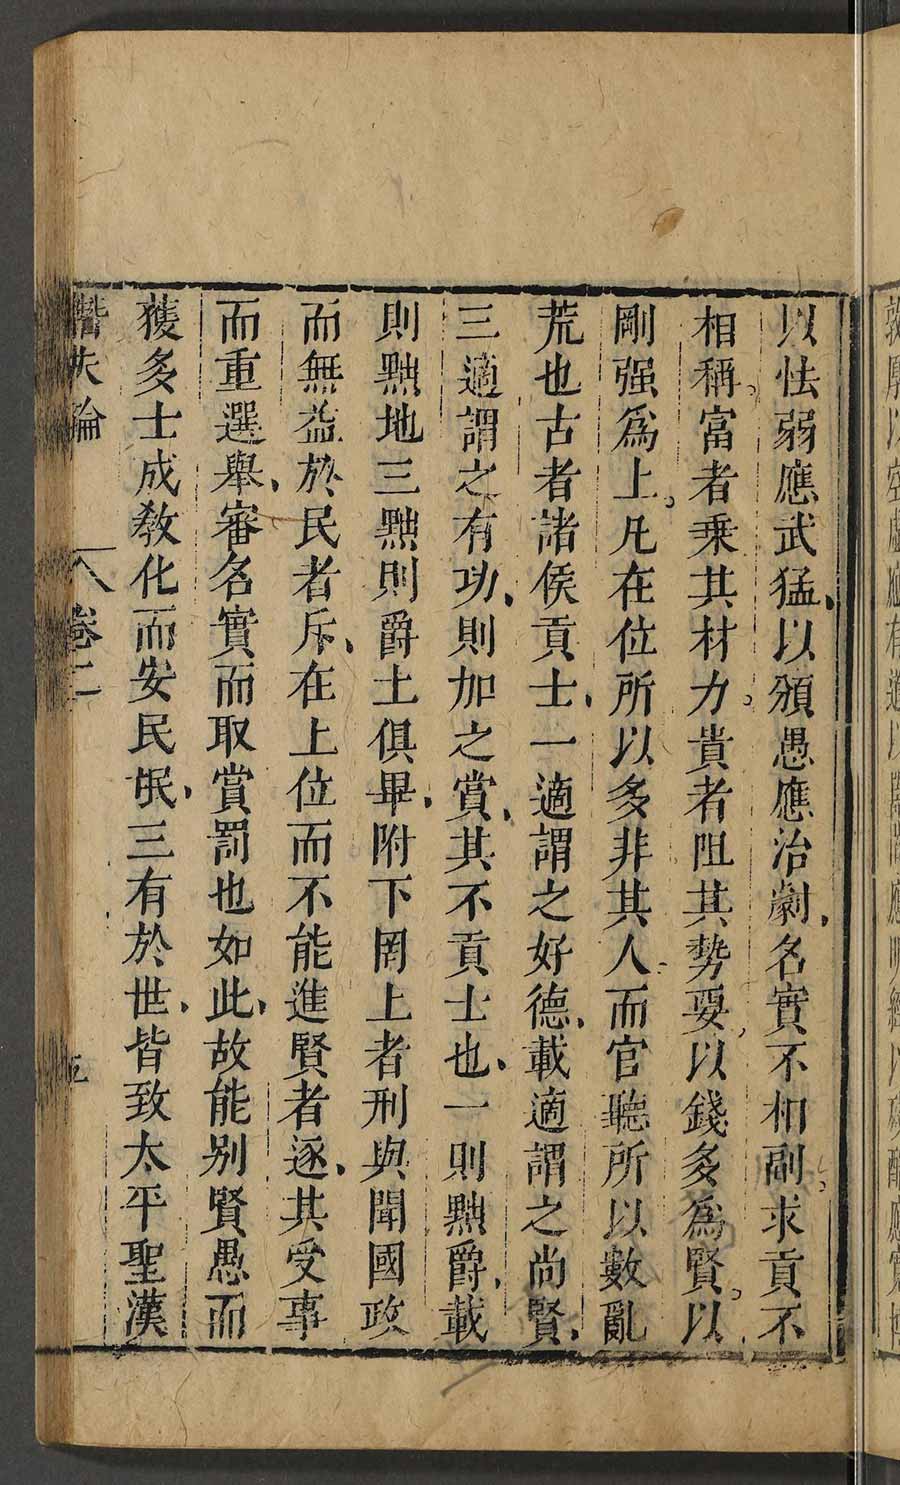 以怯弱應武猛以頑愚應治劇名實不相副求貢不
相稱富者乗其材力貴者阻其勢要以錢多爲賢以
剛强爲上凡在位所以多非其人而官聽所以數亂
荒也古者諸侯貢士一適謂之好德載適謂之尚賢
三適謂之有功則加之賞其不貢士也一則黜爵載
則黜地三黜則爵土俱畢附下罔上者刑與聞國政
而無益於民者斥在上位而不能進賢者逐其受事
而重選舉審名實而取賞罰也如此故能别賢愚而
獲多士成教化而安民氓三有於世皆致太平聖漢
潛夫論 卷二